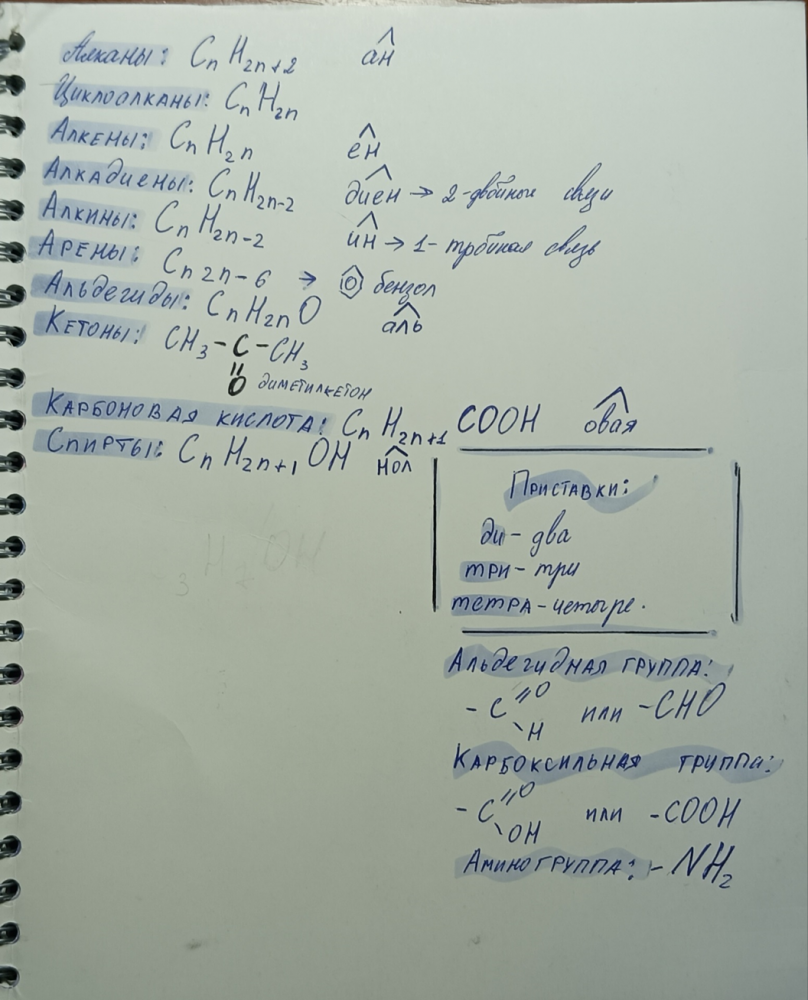 Алканы: CnH2n+2 ан
Циклоалканы: CnH2n
Алкены: CnH2n ен
Алкадиены: CnH2n-2 диен → 2-двойные связи
Алкины: CnH2n-2 ин → 1-тройная связь
Арены: Cn2n-6 → бензол
Альдегиды: CnH2nO аль
Кетоны: CH3-C-CH3
=
O диметилкетон
Карбоновая кислота: CnH2n+1 COOH овая
Спирты: CnH2n+1 OH нол
Приставки:
ди - два
три - три
тетра - четыре.
Альдегидная группа:
-C =O -H или -CHO
Карбоксильная группа:
-C =O -OH или -COOH
Аминогруппа: -NH2